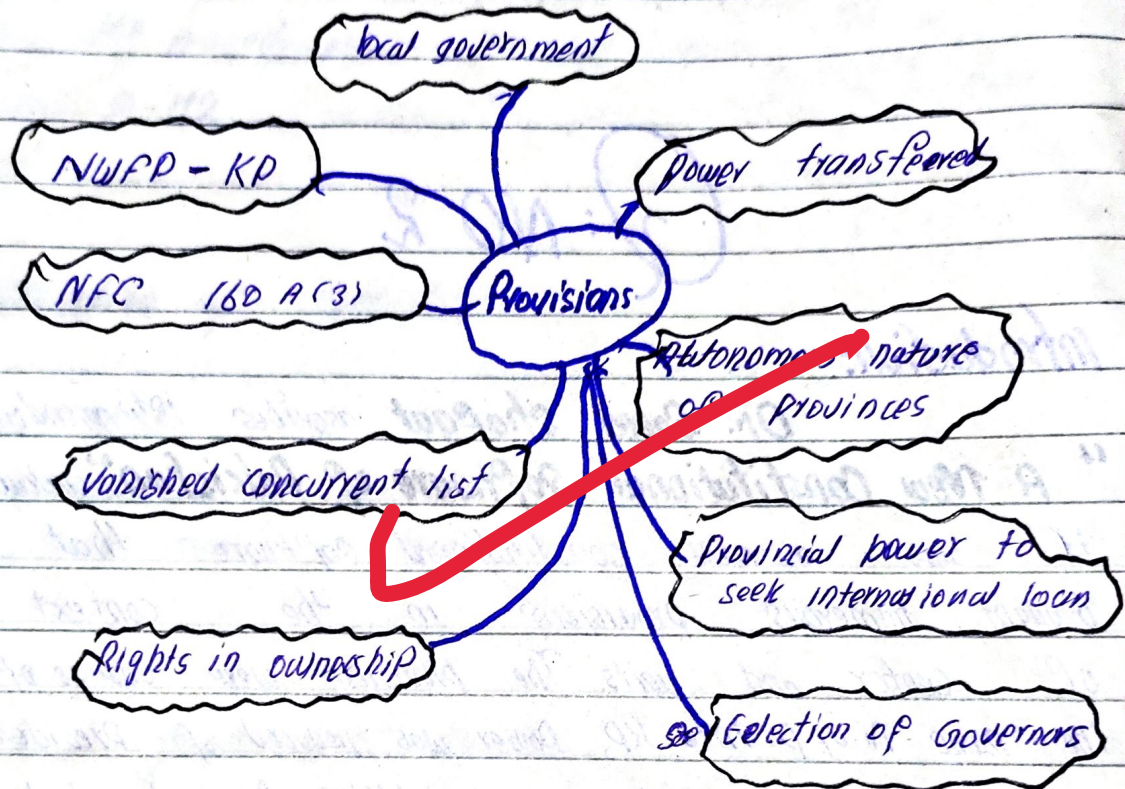 local government
NWFP - KP
Power transfeered
NFC 160 A(3)
Provisions
Autonomous nature
of provinces
vanished concurrent list
Provincial power to
seek international loan
Rights in ownership
Selection of Governors